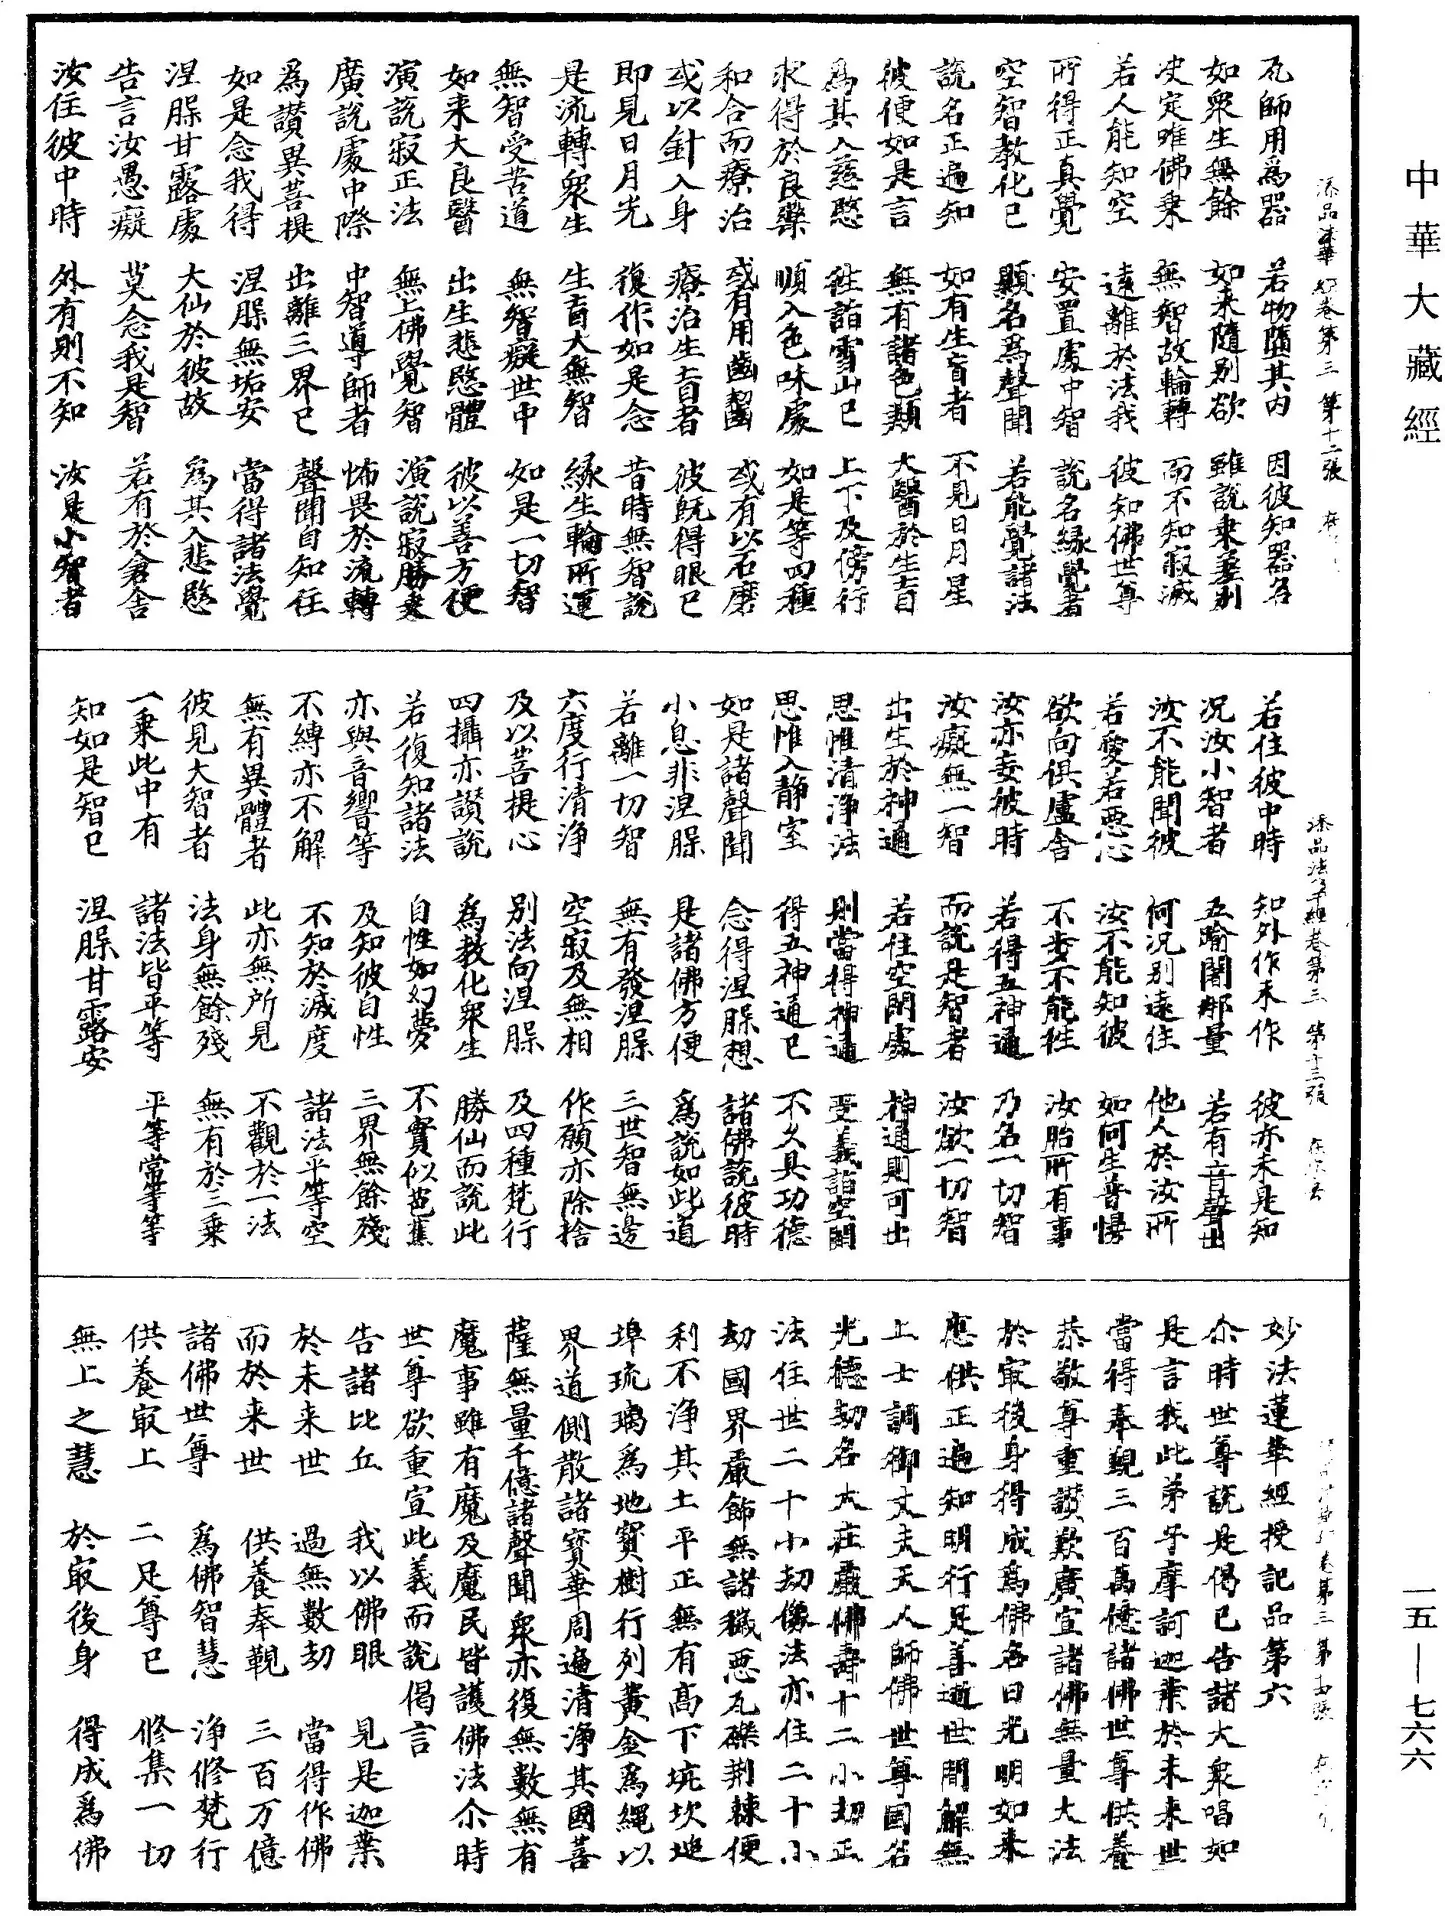 中華大藏經
瓦師用為器　若物隨其內　因彼知器名
如眾生無餘　如來隨別欲　雖說乘差別
決定唯佛乘　無智故輪轉　而不知寂滅
若人能知空　遠離於法我　彼知佛世尊
所得正真覺　安置處中智　說名緣覺者
空智教化已　顯名為聲聞　若能覺諸法
說名正遍知　如有生盲者　不見日月星
彼便如是言　無有諸色類　大醫於生盲
為其入慈愍　往詣雪山已　上下及傍行
求得於良藥　順入色味處　如是等四種
和合而療治　或有用齒齧　或有以石磨
或以針入身　療治生盲者　彼既得眼已
即見日月光　復作如是念　昔時無智說
是流轉眾生　生盲大無智　緣生輪所運
無智受苦道　無智癡世中　如是一切智
如来大良醫　出生悲愍體　彼以善方便
演說寂正法　無上佛覺智　演說寂勝乘
廣說處中際　中智導師者　怖畏於流轉
為讚異菩提　出離三界已　聲聞自知住
如是念我得　涅槃無垢安　當得諸法覺
涅槃甘露處　大仙於彼故　為其入悲愍
告言汝愚癡　莫念我是智　若有於倉舍
汝住彼中時　外有則不知　汝是小智者
添品法華經卷第三　第十二張
若住彼中時　知外作未作　彼亦未是知
況汝小智者　五踰闍那量　若有音聲出
汝不能聞彼　何況別遠住　他人於汝所
若愛若惡心　汝不能知彼　如何生普慢
欲向俱盧舍　不步不能往　汝胎所有事
汝亦妄彼時　若得五神通　乃名一切智
汝癡無一智　而說是智者　汝欲一切智
出生於神通　若住空閑處　神通則可出
思惟清淨法　則當得神通　受義詣空閑
思惟入靜室　得五神通已　不久具功德
如是諸聲聞　念得涅槃想　諸佛說彼時
小息非涅槃　是諸佛方便　為說如此道
若離一切智　無有發涅槃　三世智無邊
六度行清淨　空寂及無相　作願亦除捨
及以菩提心　別法向涅槃　及四種梵行
四攝亦讚說　為教化眾生　勝仙而說此
若復知諸法　自性如幻夢　不實似芭蕉
亦與音響等　及知彼自性　三界無餘殘
不縛亦不解　不知於滅度　諸法平等空
無有異體者　此亦無所見　不觀於一法
彼見大智者　法身無餘殘　無有於三乘
一乘此中有　諸法皆平等　平等當等等
知如是智已　涅槃甘露安
添品法華經卷第三　第十三張
妙法蓮華經授記品第六
尒時世尊說是偈已告諸大眾唱如
是言我此弟子摩訶迦葉於未來世
當得奉覲三百萬億諸佛世尊供養
恭敬尊重讚歎廣宣諸佛無量大法
於㝡後身得成為佛名曰光明如來
應供正遍知明行足善逝世間解無
上士調御丈夫天人師佛世尊國名
光德劫名大莊嚴佛壽十二小劫正
法住世二十小劫像法亦住二十小
劫國界嚴飾無諸穢惡瓦礫荊棘便
利不淨其土平正無有高下坑坎堆
埠琉璃為地寶樹行列黃金為繩以
界道側散諸寶華周遍清淨其國菩
薩無量千億諸聲聞眾亦復無數無有
魔事雖有魔及魔民皆護佛法尒時
世尊欲重宣此義而說偈言
告諸比丘　我以佛眼　見是迦葉
於未来世　過無數劫　當得作佛
而於来世　供養奉覲　三百万億
諸佛世尊　為佛智慧　淨修梵行
供養㝡上　二足尊已　修集一切
無上之慧　於㝡後身　得成為佛
一五—七六六